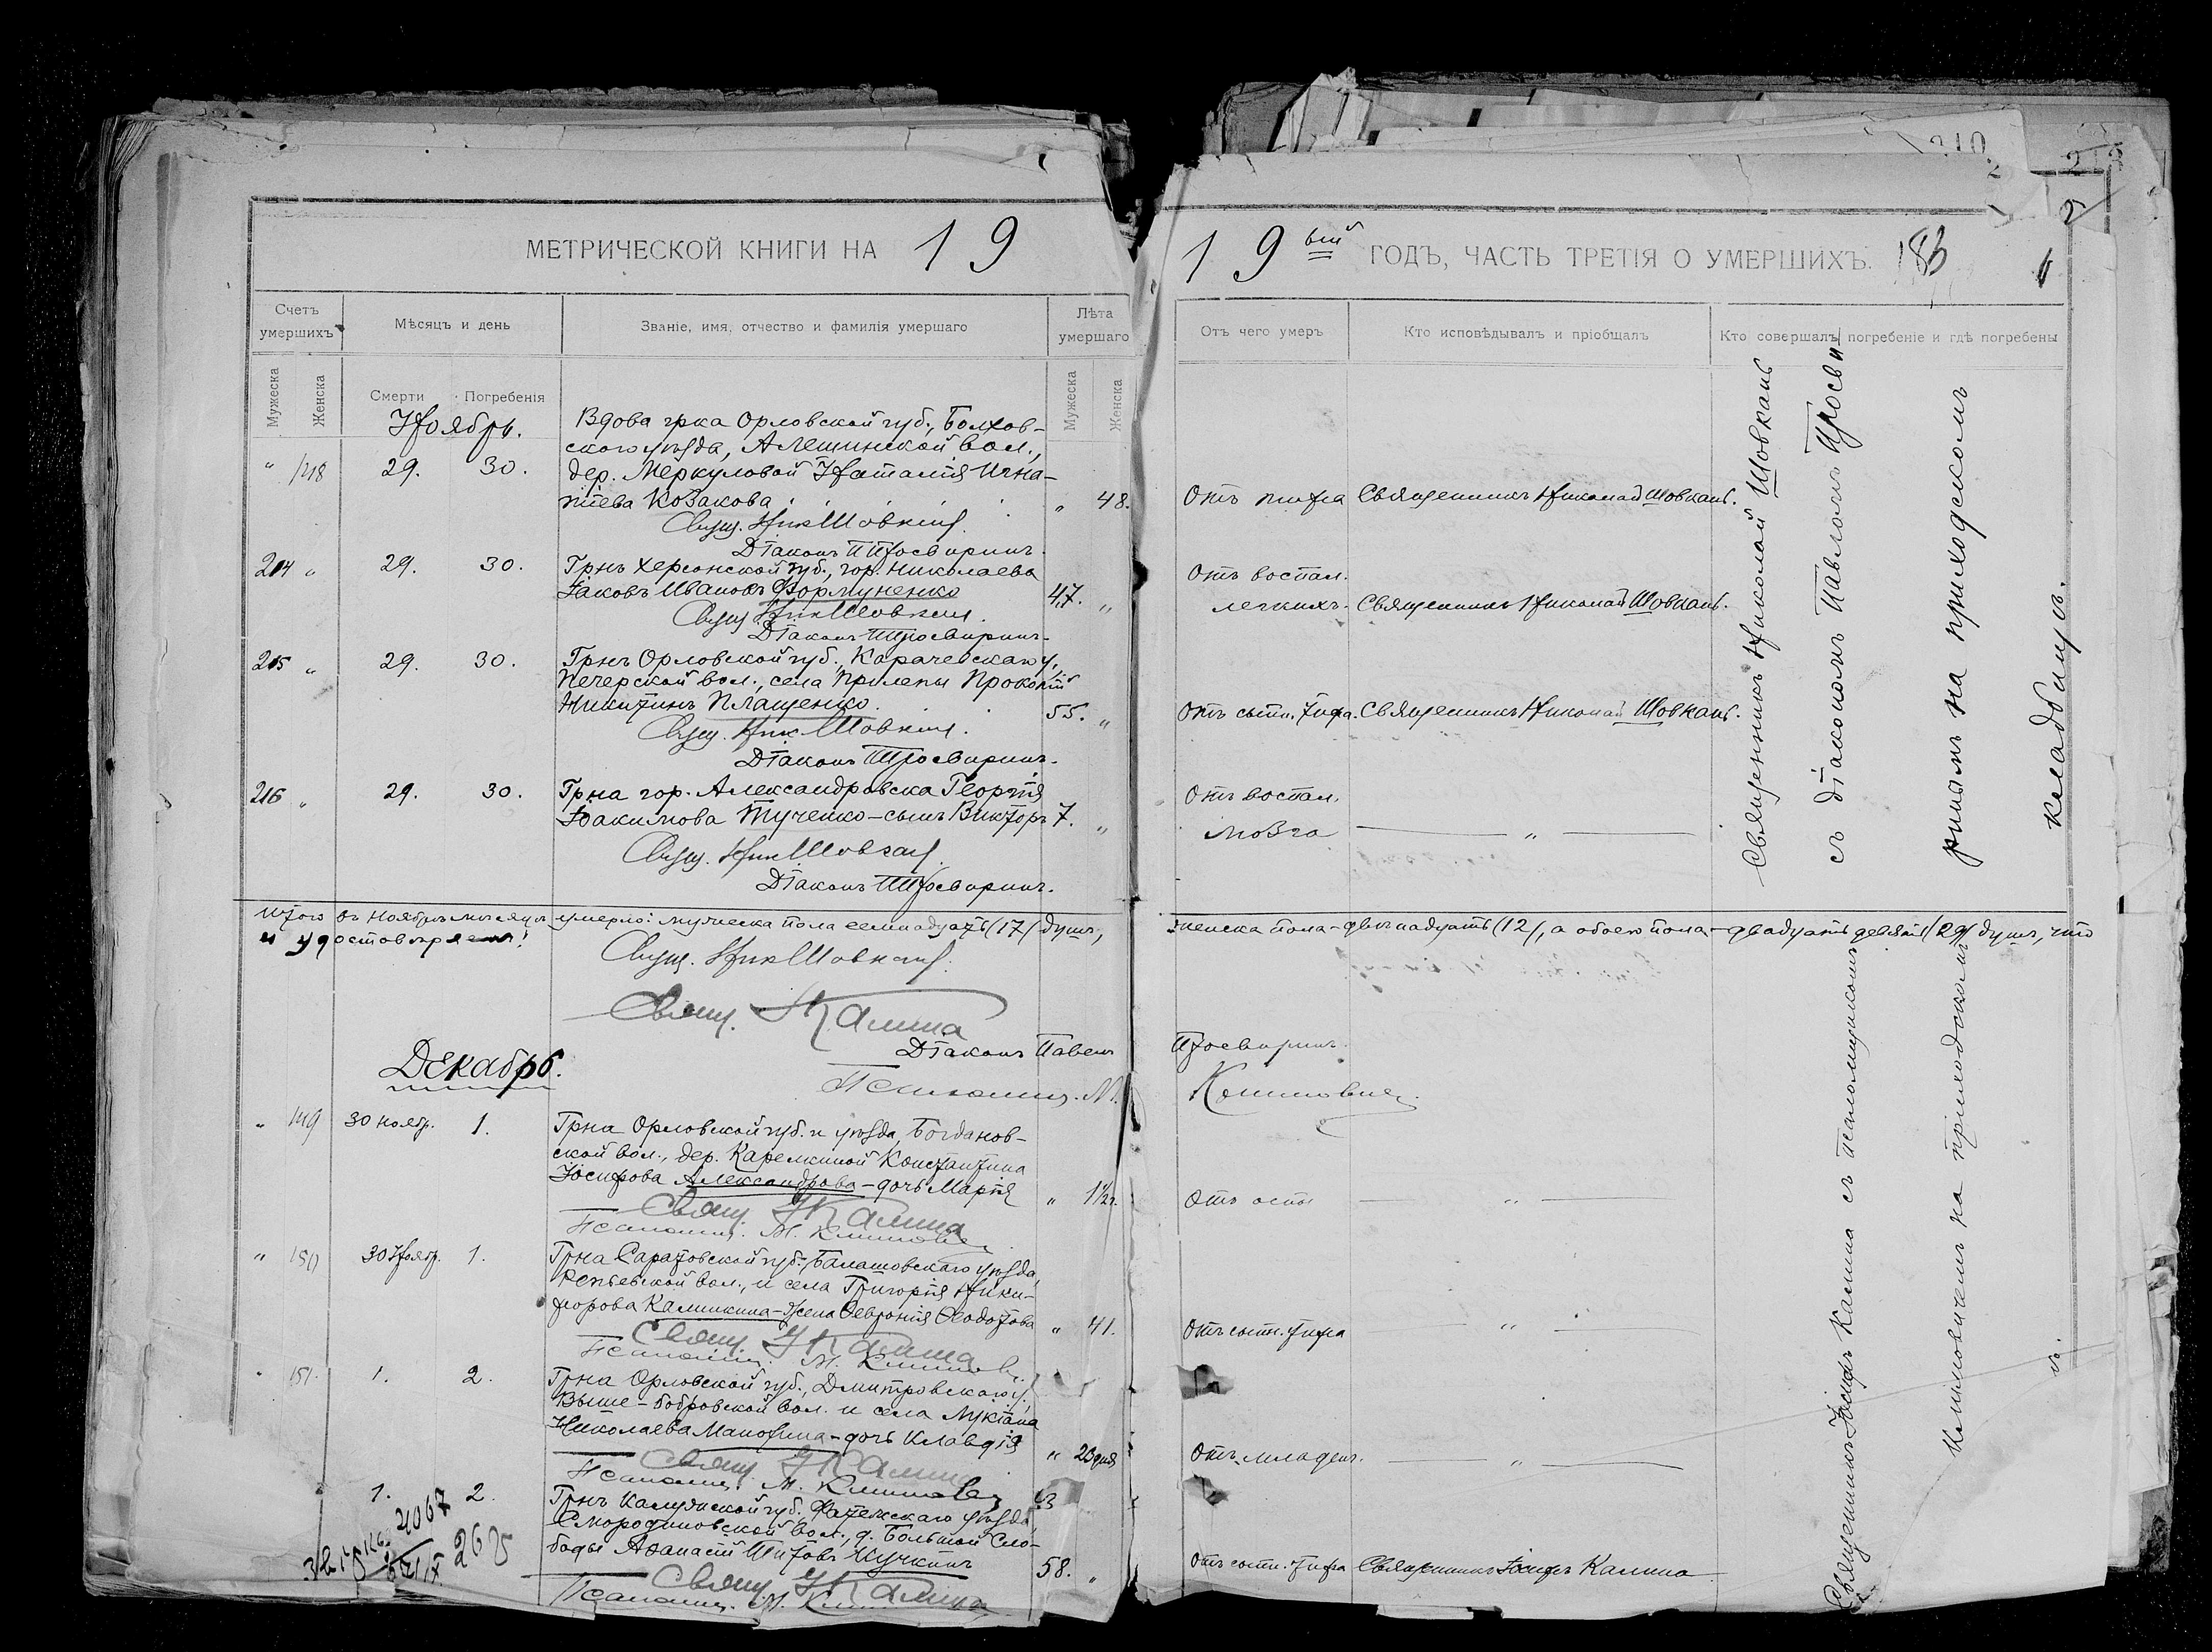 МЕТРИЧЕСКОЙ КНИГИ НА 19
19ый ГОДЪ, ЧАСТЬ ТРЕТІЯ О УМЕРШИХЪ. 183
Счетъ умершихъ
Мѣсяцъ и день
Званіе, имя, отчество и фамилія умершаго
Лѣта умершаго
Отъ чего умеръ
Кто исповѣдывалъ и пріобщалъ
Кто совершалъ погребеніе и гдѣ погребены
Мужеска
Женска
Смерти
Погребенія
Мужеска
Женска
Ноябрь.
Вдова грка Орловской губ., Болхов-
скаго уѣзда, Алешинской вол.,
" 148 29. 30. дер. Меркуловой Наталія Игна-
тіева Козакова " 48. Отъ тифа Священникъ Николай Шовкань.
Свящ. Ник Шовкань.
Діаконъ П Просвиринъ.
214 " 29. 30. Грнъ Херсонской губ., гор. Николаева
Іаковъ Ивановъ Фортуненко 47. " Отъ воспал.
легкихъ. Священникъ Николай Шовкань.
Свящ Ник Шовкань.
Діаконъ П Просвиринъ.
215 " 29. 30. Грнъ Орловской губ., Карачевскаго у.,
Печерской вол., села Прилепы Прокопій
Никитинъ Плащенко. 55. " Отъ сыпн. тифа. Священникъ Николай Шовкань.
Свящ. Ник. Шовкань.
Діаконъ П Просвиринъ.
216 " 29. 30. Грна гор. Александровска Георгія
Іоакимова Тученко - сынъ Викторъ 7. " Отъ воспал.
мозга "
Свящ. Ник Шовкань.
Діаконъ П Просвиринъ.
Священникъ Николай Шовкань
съ діакономъ Павломъ Просви-
ринымъ на приходскомъ
кладбищѣ.
Итого въ ноябрѣ мѣсяцѣ умерло: мужеска пола семнадцать (17) душъ, женска пола - двѣнадцать (12), а обоего пола - двадцать девять (29) душъ, что
и удостовѣряемъ:
Свящ. Ник Шовкань.
Свящ. І Калина
Діаконъ Павелъ Просвиринъ.
Псаломщ. М. Климовичъ.
Декабрь.
" 149 30 ноябр. 1. Грна Орловской губ. и уѣзда, Богданов-
ской вол., дер. Карелкиной Константина
Іосифова Александрова - дочь Марія " 1½ г. Отъ оспы "
Свящ. І Калина
Псаломщ. М. Климович
" 150 30 Ноябр. 1. Грна Саратовской губ., Балашовскаго уѣзда,
Репьевской вол., и села Григорія Ники-
форова Калинкина - жена Февронія Ѳеодотова " 41. Отъ сыпн. тифа "
Свящ. І Калина
Псаломщ. М. Климович
" 151. 1. 2. Грна Орловской губ., Дмитровскаго у.
Выше-Бобровской вол. и села Лукіана
Николаева Манохина - дочь Клавдія " 20 дня Отъ младен. "
Свящ. І Калина
Псаломщ. М. Климович
1. 2. Грнъ Калужской губ. Фатежскаго уѣзда,
Смородиновской вол., д. Большой Сло-
боды Аѳанасій Титовъ Жучкинъ 58. " Отъ сыпн. тифа Священникъ Іосифъ Калина
Свящ. І Калина
Псаломщ. М.
Священникъ Іосифъ Калина съ псаломщикомъ
Климовичемъ на приходскомъ